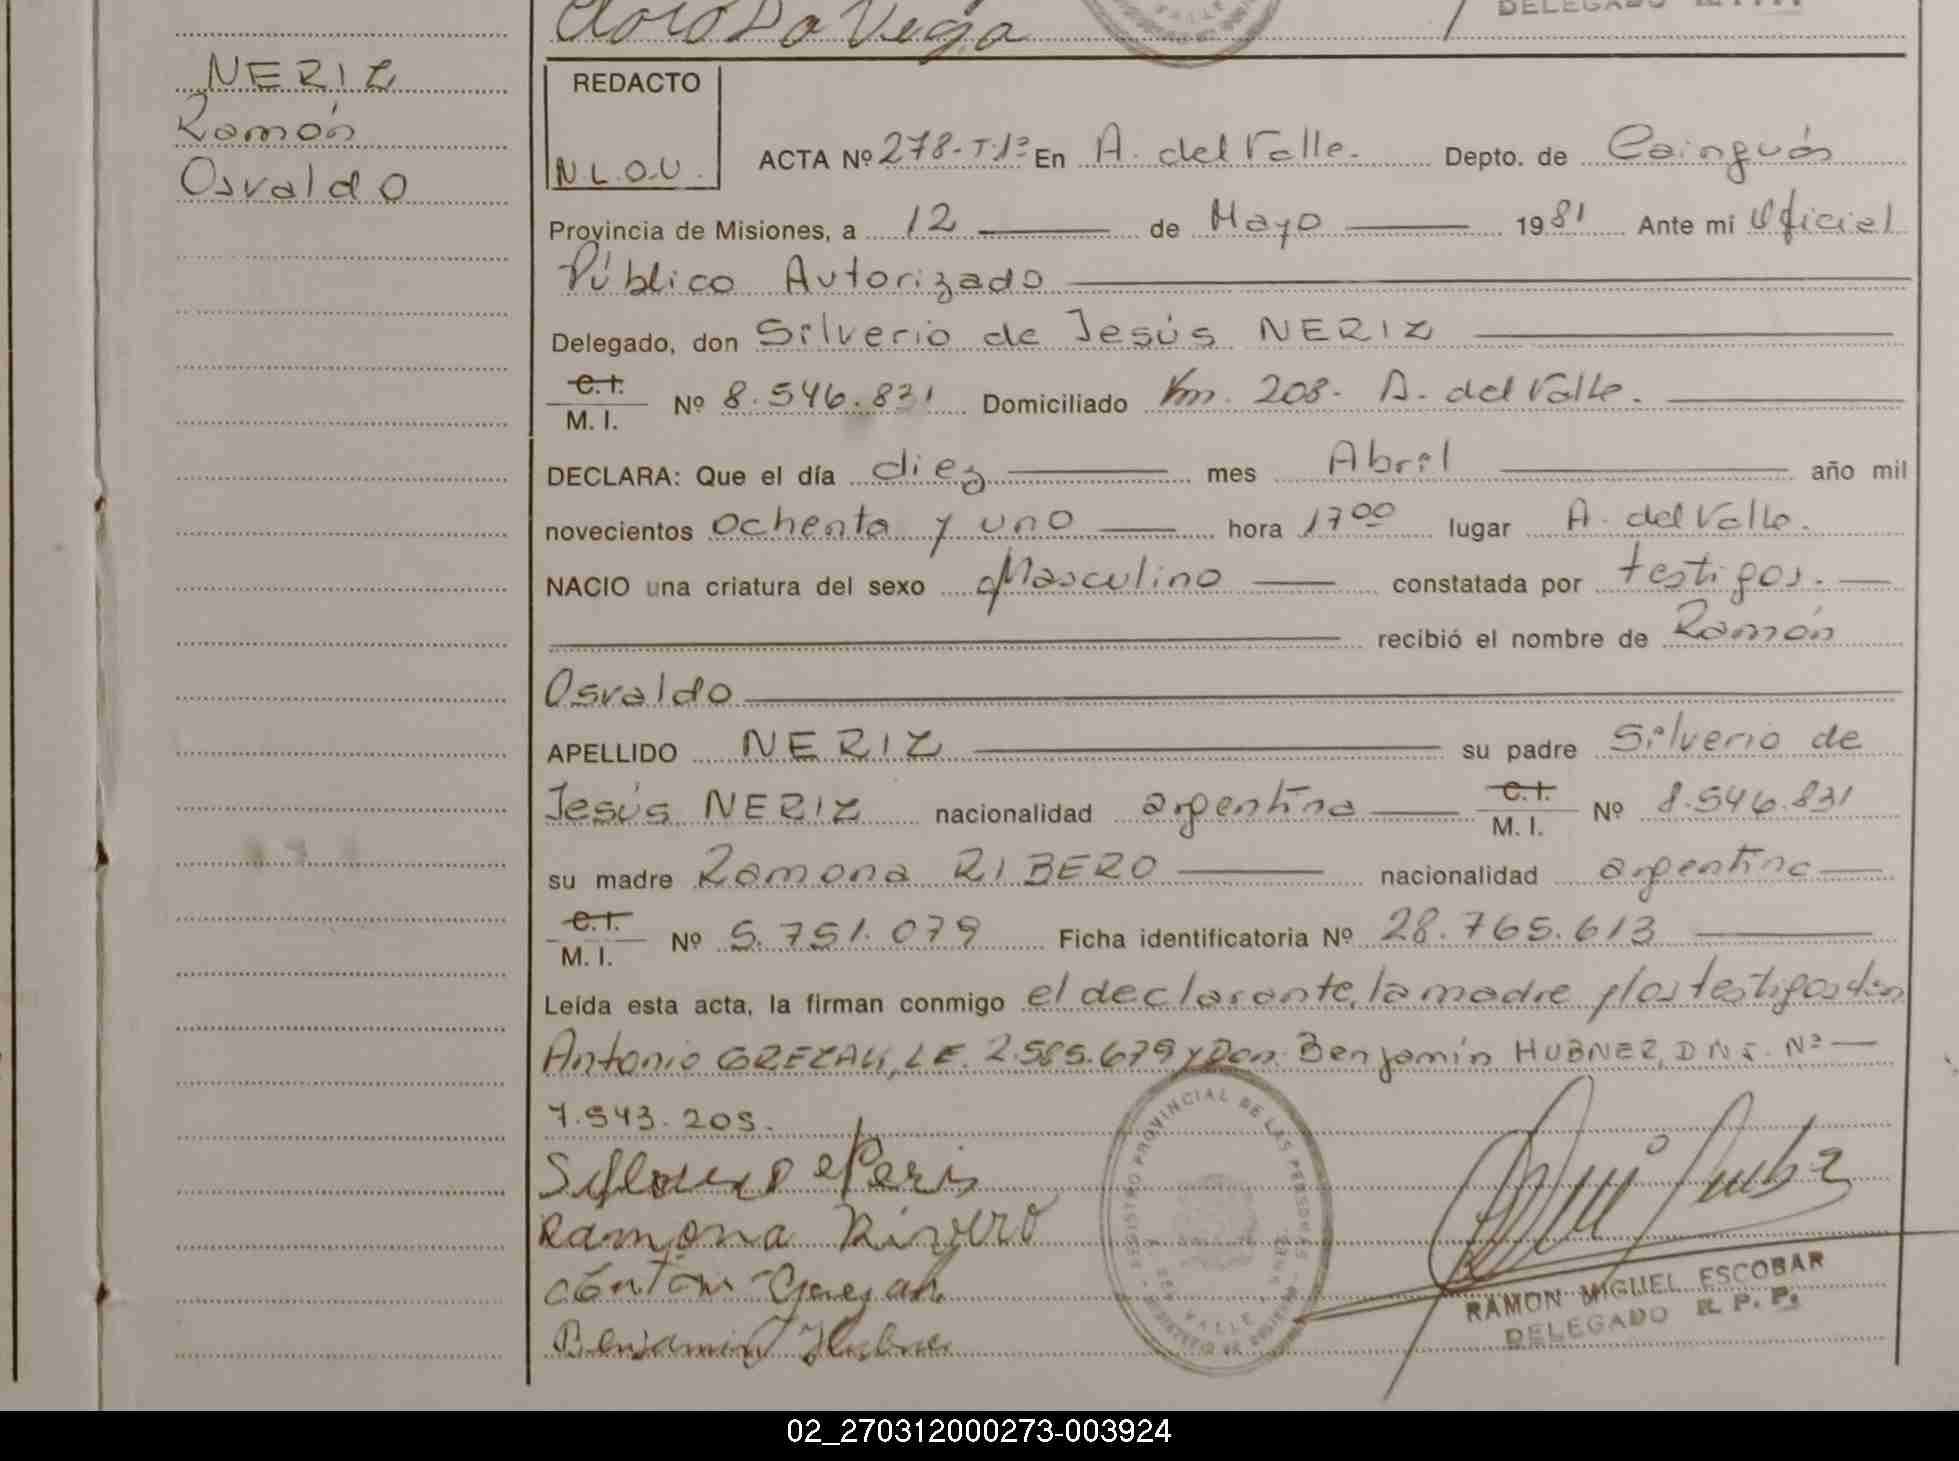 Vega
DELEGADO
NERIZ
Ramón
Osvaldo
REDACTO
N.L.O.U.
ACTA Nº 278-T.1º En A. del Valle. Depto. de Cainguás
Provincia de Misiones, a 12 de Mayo 1981 Ante mi Oficial
Público Autorizado
Delegado, don Silverio de Jesús NERIZ
C.I.
M. I. Nº 8.546.831 Domiciliado Km. 208- A. del Valle.
DECLARA: Que el día diez mes Abril año mil
novecientos ochenta y uno hora 17 00 lugar A. del Valle.
NACIO una criatura del sexo Masculino constatada por testigos.
recibió el nombre de Ramón
Osvaldo
APELLIDO NERIZ su padre Silverio de
Jesús NERIZ nacionalidad argentina C.I. M. I. Nº 8.546.831
su madre Ramona RIBERO nacionalidad argentina
C.I.
M. I. Nº 5.751.079 Ficha identificatoria Nº 28.765.613
Leída esta acta, la firman conmigo el declarante, la madre y los testigos don
Antonio GREZAU, L.E. 2.585.679 y Don Benjamín HUBNER, D.N.I. Nº
7.543.205.
Ramona Rivero
Benjamin Hubner
REGISTRO PROVINCIAL DE LAS PERSONAS
DEL VALLE
RAMON MIGUEL ESCOBAR
DELEGADO R. P. P.
02_270312000273-003924